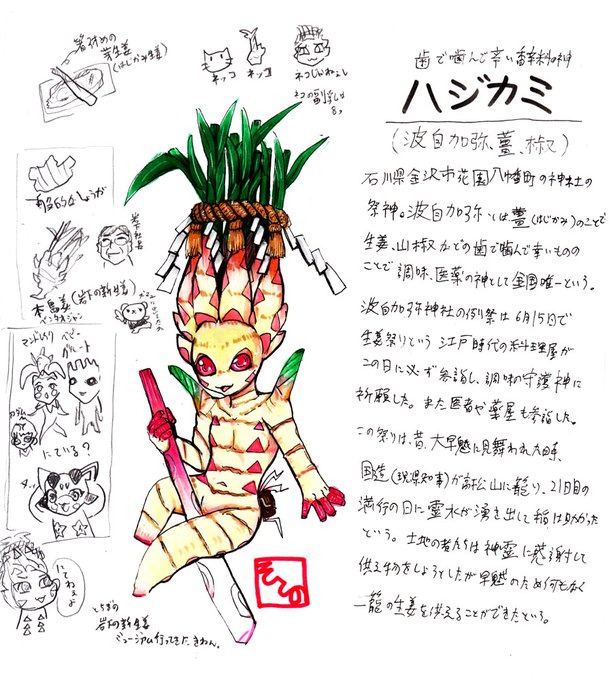 歯で噛んで辛い香辛料の神
ハジカミ
(波自加弥、薑、椒)
石川県金沢市花園八幡町の神社の
祭神。波自加弥とは薑(はじかみ)のことで
生姜、山椒などの歯で噛んで辛いものの
ことで調味、医薬の神として全国唯一という。
波自加弥神社の例祭は6月15日で
生姜祭りという 江戸時代の料理屋が
この日に必ず参詣し、調味の守護神に
祈願した。また医者や薬屋も参詣した。
この祭りは、昔、大旱魃に見舞われた時、
国造(現県知事)が高松山に籠り、21日目の
満行の日に霊水が湧き出して稲は助かった
という。土地の者たちは神霊に感謝して
供え物をしようとしたが旱魃のため何もなく
一籠の生姜を供えることができたという。
筆休めの
芽生姜
(はじかみ生姜)
ネッコ
ネッコ
ネコじんねん
有名なしょうが
岩下社長
本島姜(岩下の新生姜)
マンドレイク
ベビー
グルート
にている?
にてねぇよ
とちぎの
岩下の新生姜
ミュージアム行ってきた。きわん。